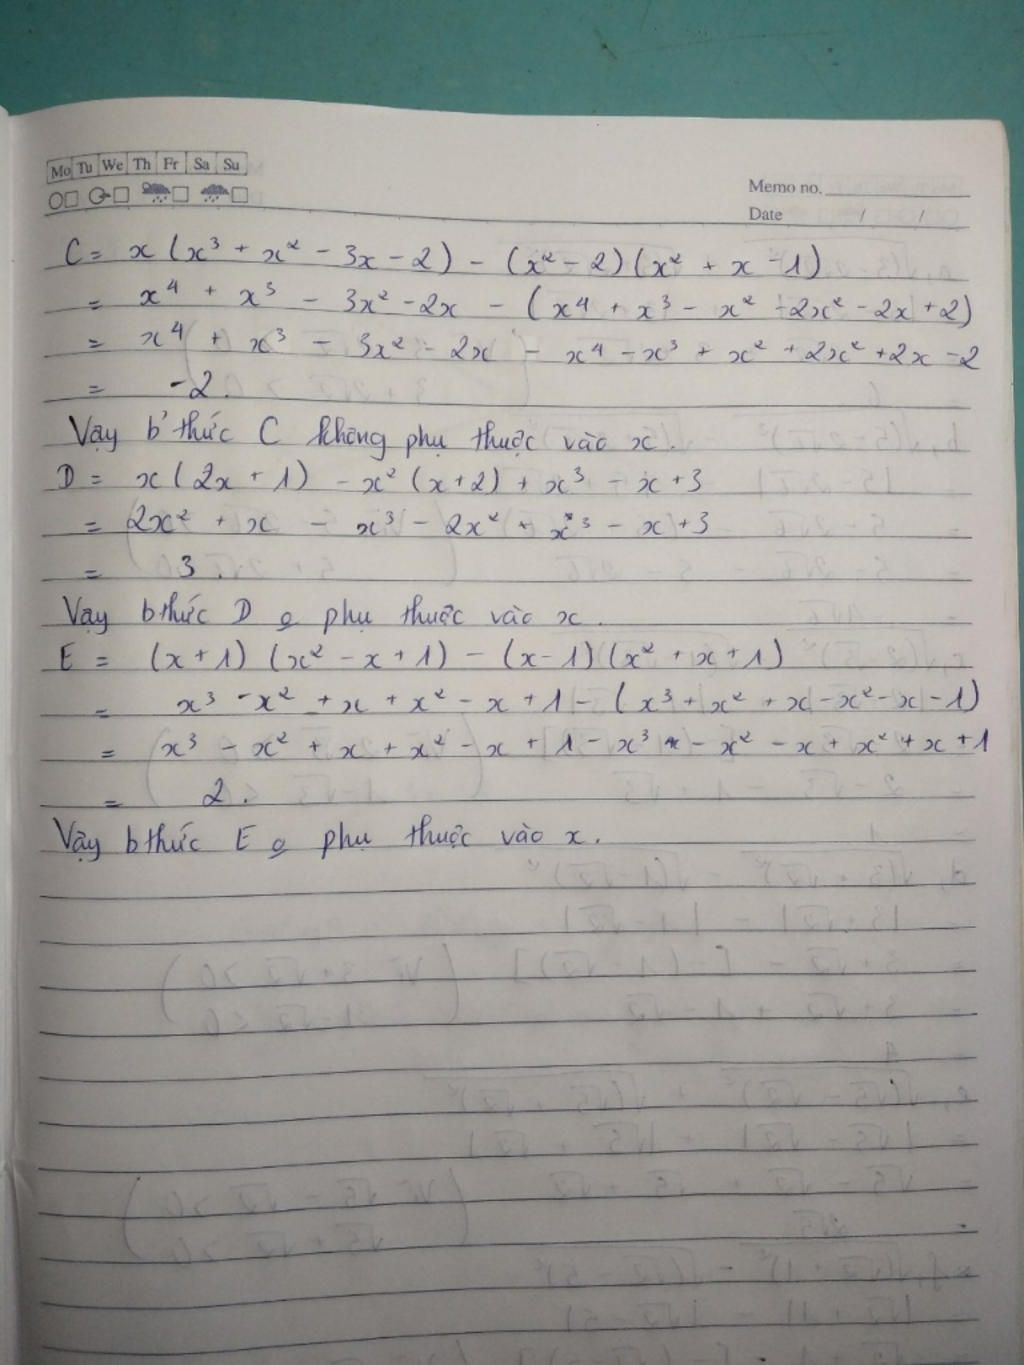 Mo Tu We Th Fr Sa Su
Memo no.
Date / /
C = x (x³ + x² - 3x - 2) - (x² - 2) (x² + x - 1)
= x⁴ + x³ - 3x² - 2x - (x⁴ + x³ - x² - 2x² - 2x + 2)
= x⁴ + x³ - 3x² - 2x - x⁴ - x³ + x² + 2x² + 2x - 2
= -2.
Vậy b' thức C không phụ thuộc vào x.
D = x (2x + 1) - x² (x + 2) + x³ - x + 3
= 2x² + x - x³ - 2x² + x³ - x + 3
= 3.
Vậy b thức D o phụ thuộc vào x.
E = (x + 1) (x² - x + 1) - (x - 1) (x² + x + 1)
= x³ - x² + x + x² - x + 1 - (x³ + x² + x - x² - x - 1)
= x³ - x² + x + x² - x + 1 - x³ - x² - x + x² + x + 1
= 2.
Vậy b thức E o phụ thuộc vào x.